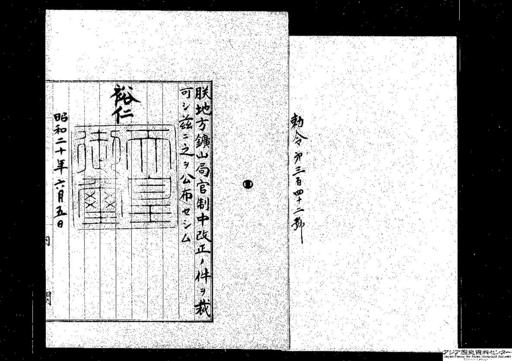 勅令第三百四十二號
朕地方鑛山局官制中改正ノ件ヲ裁
可シ茲ニ之ヲ公布セシム
裕仁
天皇
御璽
昭和二十年六月五日
アジア歴史資料センター